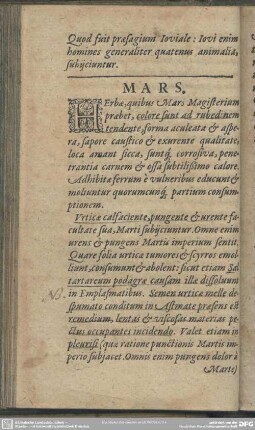 Quod fuit præsagium Ioviale: Iovi enim
homines generaliter quatenus animalia,
subijciuntur.
MARS.
HErbæ, quibus Mars Magisterium
præbet, colore sunt ad rubedinem
tendente, forma aculeata & aspe-
ra, sapore caustico & exurente qualitate,
loca amant sicca, suntq́, corrosiva, pene-
trantia carnem & ossa subtilissimo calore.
Adhibitæ ferrum è vulneribus educunt &
moliuntur quorumcunq́, partium consum-
ptionem.
Vrticæ calfaciente, pungente & urente fa-
cultate sua, Marti subijciuntur. Omne enim
urens & pungens Martis imperium sentit.
Quare folia urticæ tumores & scyrros emol-
liunt, consumunt & abolent: sicut etiam Sal
tartareum podagræ causam illæ dissolvunt
in Emplasmatibus. Semen urticæ melle de-
spumato conditum in Astmate præsens est
remedium, lentas & viscosas materias pe-
ctus occupantes incidendo. Valet etiam in
pleurisi (quæ ratione punctionis Martis im-
perio subjacet. Omnis enim pungens dolor à
Marte)
NB.